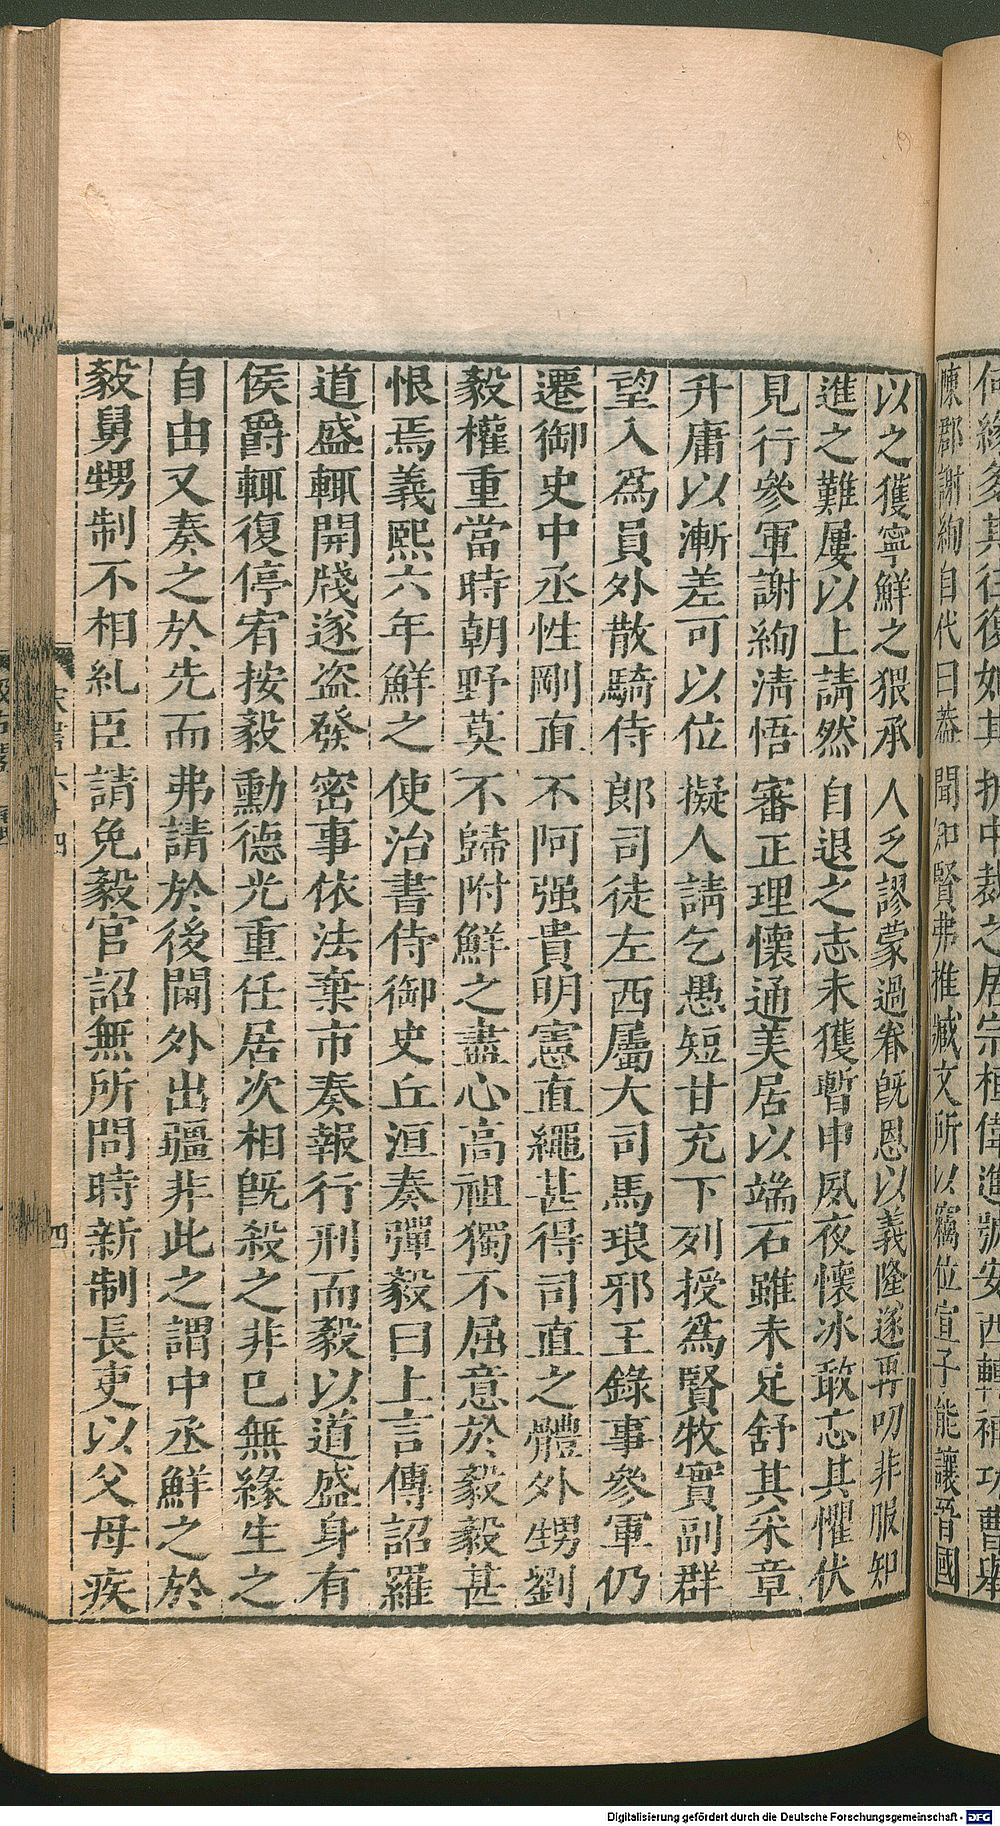 何綏多其往復如其
陳郡謝絢自代曰蓋聞知賢弗推臧文所以竊位宣子能讓晉國
以之獲寧鮮之猥承人乏謬蒙過眷旣恩以義隆遂再叨非服知
進之難屢以上請然自退之志未獲暫申夙夜懷冰敢忘其懼伏
見行參軍謝絢清悟審正理懷通美居以端石雖未足舒其采章
升庸以漸差可以位擬人請乞愚短甘充下列授爲賢牧實副群
望入爲員外散騎侍郎司徒左西屬大司馬琅邪王錄事參軍仍
遷御史中丞性剛直不阿强貴明憲直繩甚得司直之體外甥劉
毅權重當時朝野莫不歸附鮮之盡心高祖獨不屈意於毅毅甚
恨焉義熙六年鮮之使治書侍御史丘洹奏彈毅曰上言傳詔羅
道盛輒開牋遂盜發密事依法棄市奏報行刑而毅以道盛身有
侯爵輒復停宥按毅勳德光重任居次相旣殺之非已無緣生之
自由又奏之於先而弗請於後閫外出疆非此之謂中丞鮮之於
毅舅甥制不相糺臣請免毅官詔無所問時新制長吏以父母疾
四
Digitalisierung gefördert durch die Deutsche Forschungsgemeinschaft - DFG